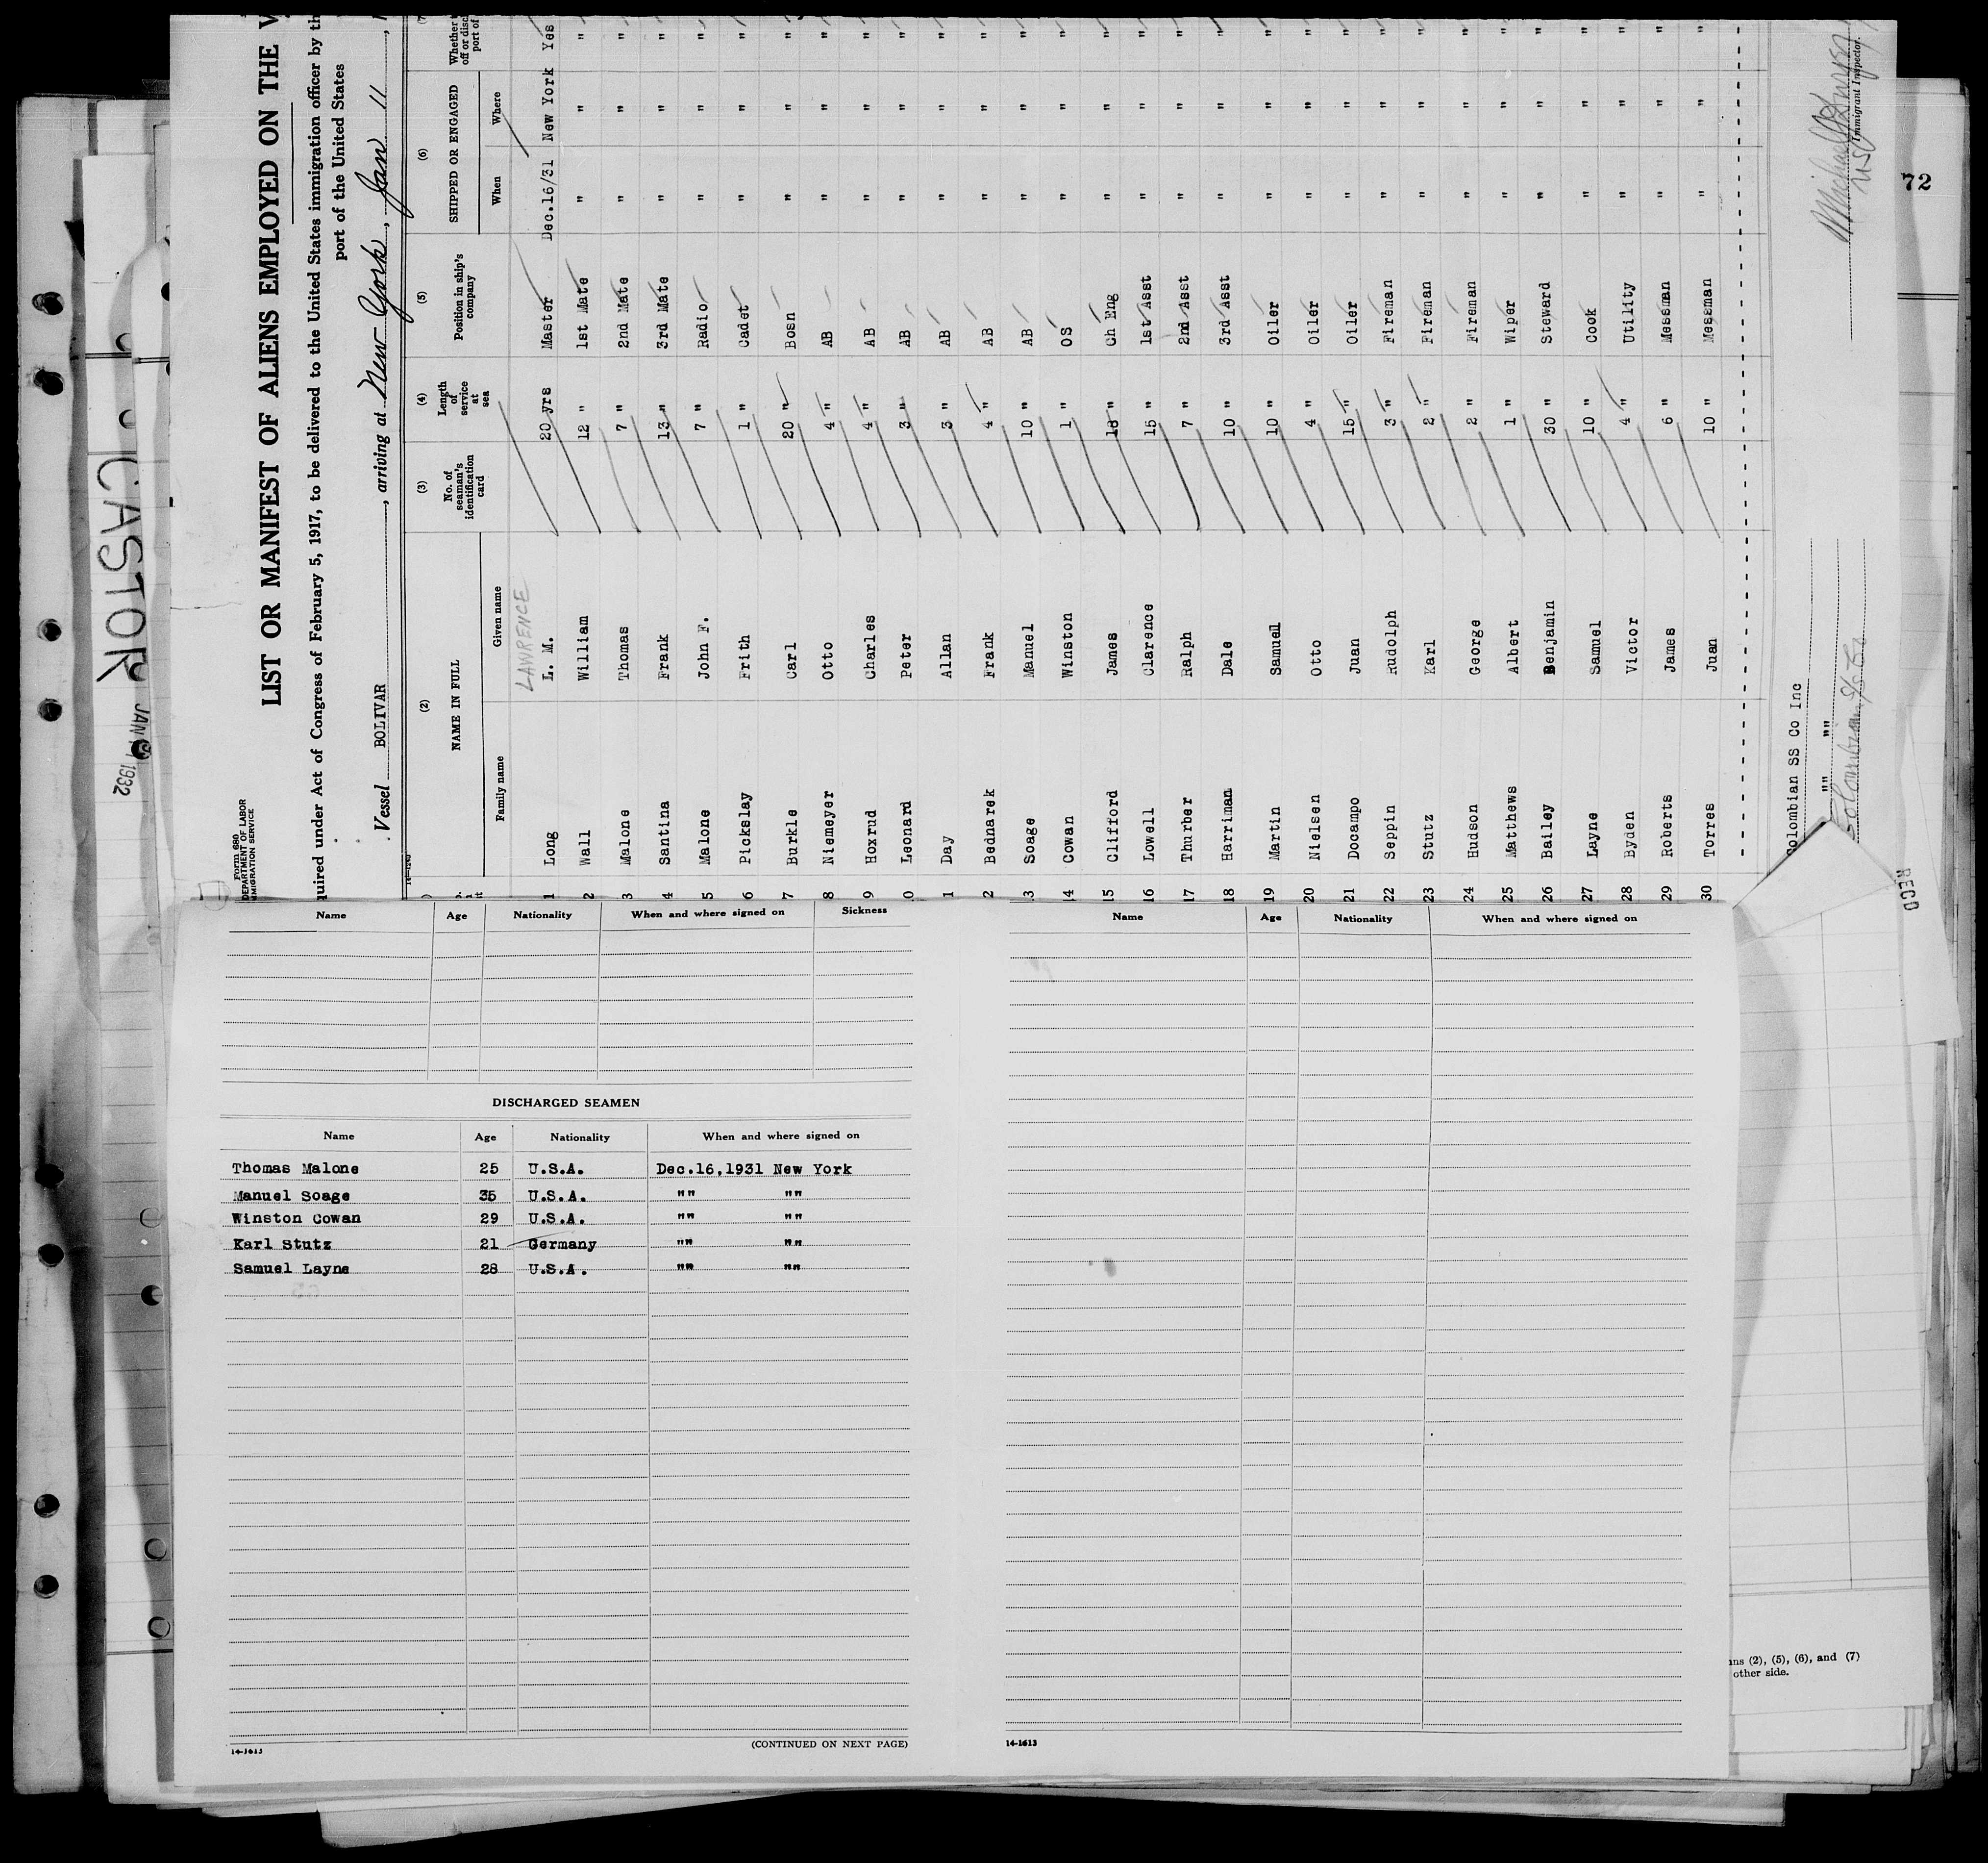 Form 680
DEPARTMENT OF LABOR
IMMIGRATION SERVICE
LIST OR MANIFEST OF ALIENS EMPLOYED ON THE V
quired under Act of Congress of February 5, 1917, to be delivered to the United States immigration officer by th
port of the United States
Vessel BOLIVAR, arriving at New York, Jan 11
(2) (3) (4) (5) (6)
NAME IN FULL No. of seaman's identification card Length of service at sea Position in ship's company SHIPPED OR ENGAGED Whether
off or disc
port of
Family name Given name When Where
LAWRENCE
1 Long L. M. 20 yrs Master Dec.16/31 New York Yes
2 Wall William 12 " 1st Mate " " "
3 Malone Thomas 7 " 2nd Mate " " "
4 Santina Frank 13 " 3rd Mate " " "
5 Malone John F. 7 " Radio " " "
6 Pickslay Frith 1 " Cadet " " "
7 Burkle Carl 20 " Bosn " " "
8 Niemeyer Otto 4 " AB " " "
9 Hoxrud Charles 4 " AB " " "
0 Leonard Peter 3 " AB " " "
1 Day Allan 3 " AB " " "
2 Bednarek Frank 4 " AB " " "
3 Soage Manuel 10 " AB " " "
14 Cowan Winston 1 " OS " " "
15 Clifford James 18 " Ch Eng " " "
16 Lowell Clarence 15 " 1st Asst " " "
17 Thurber Ralph 7 " 2nd Asst " " "
18 Harriman Dale 10 " 3rd Asst " " "
19 Martin Samuel 10 " Oiler " " "
20 Nielsen Otto 4 " Oiler " " "
21 Docampo Juan 15 " Oiler " " "
22 Seppin Rudolph 3 " Fireman " " "
23 Stutz Karl 2 " Fireman " " "
24 Hudson George 2 " Fireman " " "
25 Matthews Albert 1 " Wiper " " "
26 Bailey Benjamin 30 " Steward " " "
27 Layne Samuel 10 " Cook " " "
28 Byden Victor 4 " Utility " " "
29 Roberts James 6 " Messman " " "
30 Torres Juan 10 " Messman " " "
Colombian SS Co Inc
"" ""
Colombian S/S Co
Immigrant Inspector.
72
CASTOR
JAN 1932
RECD
Name Age Nationality When and where signed on Sickness
DISCHARGED SEAMEN
Name Age Nationality When and where signed on
Thomas Malone 25 U.S.A. Dec.16,1931 New York
Manuel Soage 35 U.S.A. "" ""
Winston Cowan 29 U.S.A. "" ""
Karl Stutz 21 Germany "" ""
Samuel Layne 28 U.S.A. "" ""
14-1613
(CONTINUED ON NEXT PAGE)
Name Age Nationality When and where signed on
14-1613
ns (2), (5), (6), and (7)
other side.